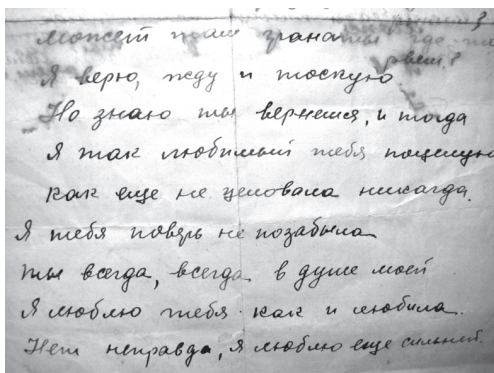 3
может там гранаты где-то
рвет?
Я верю, жду и тоскую
Но знаю ты вернешся, и тогда
Я так любимый тебя поцелую
как еще не целовала никагда.
Я тебя поверь не позабыла
ты всегда, всегда в душе моей
Я люблю тебя как и любила.
Нет неправда, я люблю еще сильней.